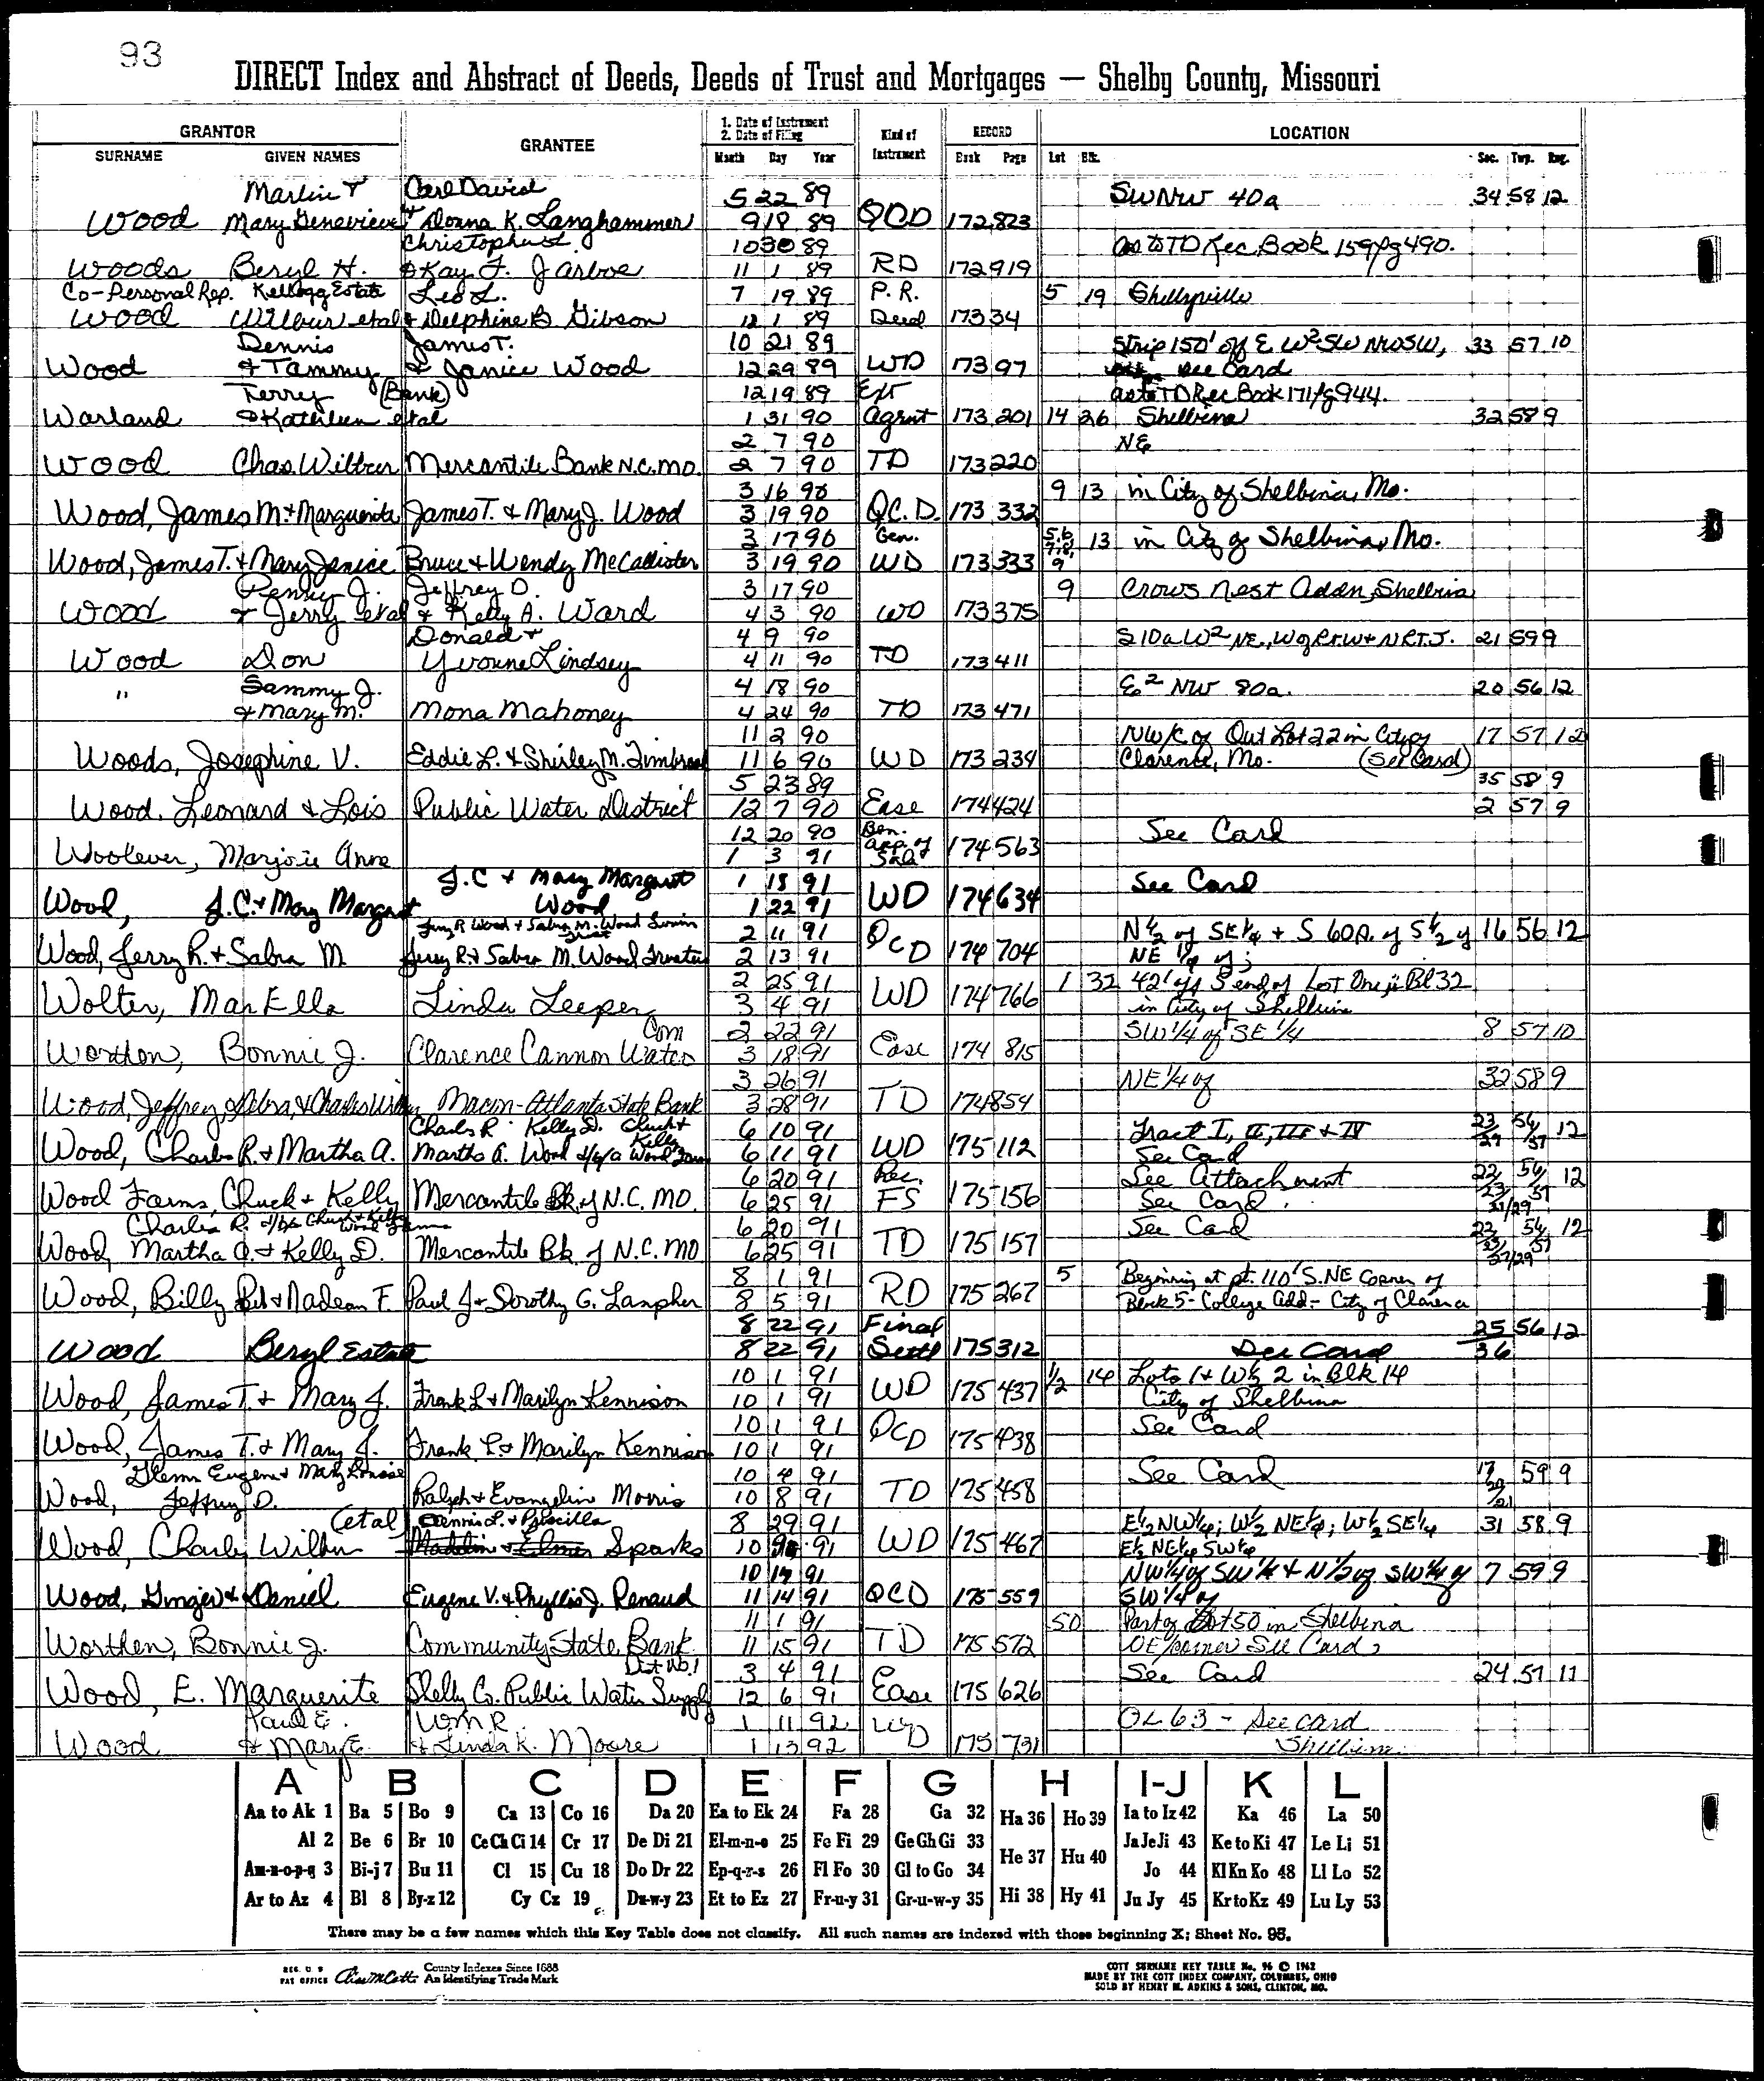 93
DIRECT Index and Abstract of Deeds, Deeds of Trust and Mortgages — Shelby County, Missouri
GRANTOR GRANTEE 1. Date of Instrument 2. Date of Filing Kind of Instrument RECORD LOCATION
SURNAME GIVEN NAMES Month Day Year Book Page Lot Blk. Sec. Twp. Rng.
Marlin T Carl David 5 22 89 SWNW 40a 34 58 12
Wood Mary Genevieve & Donna K. Langhammer 9 18 89 QCD 172 823
Christopher L. 10 30 89 as to TD Rec. Book 159 pg 490.
Woods Beryl H. & Kay F. Jarboe 11 1 89 RD 172 919
Co-Personal Rep. Kellogg Estate Leo L. 7 19 89 P.R. 5 19 Shelbyville
Wood Wilbur etal & Delphine B Gibson 12 1 89 Deed 173 34
Dennis James T. 10 21 89 Strip 150' off E W² SW NWSW, 33 57 10
Wood & Tammy & Janice Wood 12 29 89 WD 173 97 see Card
Terry (Bank) 12 19 89 Ext as to TD Rec Book 171 pg 944.
Worland & Kathleen etal 1 31 90 Agrmt 173 201 14 26 Shelbina 32 58 9
2 7 90 NE
Wood Chas. Wilbur Mercantile Bank N.C. MO. 2 7 90 TD 173 220
3 16 90 9 13 in City of Shelbina, Mo.
Wood, James M. & Marguerite James T. & Mary J. Wood 3 19 90 QC.D. 173 332
3 17 90 Gen. 5,6, 7,8, 13 in City of Shelbina, Mo.
Wood, James T. & Mary Janice Bruce & Wendy McCallister 3 19 90 WD 173 333 9
Penny J. Jeffrey D. 3 17 90 9 Crows Nest Addn, Shelbina
Wood & Jerry etal & Kelly A. Ward 4 3 90 WD 173 375
Donald & 4 9 90 S 10a W² NE, W of Rt. W & N RT. J. 21 59 9
Wood Don Yvonne Lindsey 4 11 90 TD 173 411
" Sammy J. 4 18 90 E² NW 80a. 20 56 12
& Mary M. Mona Mahoney 4 24 90 TD 173 471
11 2 90 NW/c of Out Lot 22 in City of 17 57 12
Woods, Josephine V. Eddie L. & Shirley M. Timbrook 11 6 90 WD 173 234 Clarence, Mo. (See Card)
5 23 89 35 58 9
Wood, Leonard & Lois Public Water District 12 7 90 Ease 174 424 2 57 9
12 20 90 Ben. See Card
Woolever, Marjorie Anne 1 3 91 174 563
J.C & Mary Margaret 1 18 91 See Card
Wood, J.C. & Mary Margaret Wood 1 22 91 WD 174 634
Jerry R Wood & Sabra M. Wood Trust 2 11 91 N 1/2 of SE 1/4 & S 60A. of S 1/2 of 16 56 12
Wood, Jerry R. & Sabra M. Jerry R. & Sabra M. Wood Trustees 2 13 91 QCD 174 704 NE 1/4 of;
2 25 91 1 32 42' off S end of Lot One in Bl 32
Wolter, Mar Ella Linda Leeper 3 4 91 WD 174 766 in City of Shelbina
Com 2 22 91 SW 1/4 of SE 1/4 8 57 10
Worthen, Bonnie J. Clarence Cannon Water 3 18 91 Ease 174 815
3 26 91 NE 1/4 of 32 58 9
Wood, Jeffrey, Debra, & Charles Wilbur Macon-Atlanta State Bank 3 28 91 TD 174 854
Charles R. Kelly D. Chuck & 6 10 91 Tract I, II, III & IV 12
Wood, Charles R. & Martha A. Martha A. Wood d/b/a Kelly Wood Farms 6 11 91 WD 175 112 See Card
6 20 91 Rec. See Attachment 12
Wood Farms, Chuck & Kelly Mercantile Bk. of N.C. MO. 6 25 91 FS 175 156 See Card
Charles R. d/b/a Chuck & Kelly Wood Farms 6 20 91 See Card 12
Wood, Martha A. & Kelly D. Mercantile Bk. of N.C. MO 6 25 91 TD 175 157
8 1 91 5 Beginning at pt. 110' S. NE Corner of
Wood, Billy Bob & Nadean F. Paul J. & Dorothy G. Lanpher 8 5 91 RD 175 267 Block 5 - College Add. - City of Clarence
8 22 91 Final 25 56 12
Wood Beryl Estate 8 22 91 Settl 175 312 See Card 36
10 1 91 Lots 1 & W 1/2 2 in Blk 14
Wood, James T. & Mary J. Frank L & Marilyn Kennison 10 1 91 WD 175 437 1/2 14 City of Shelbina
10 1 91 See Card
Wood, James T. & Mary J. Frank L. & Marilyn Kennison 10 1 91 QCD 175 438
Glenn Eugene & Mary Louise 10 4 91 See Card 17 59 9
Wood, Jeffrey D. Ralph & Evangeline Morris 10 8 91 TD 175 458 20/21
(etal) Dennis L. & Priscilla 8 29 91 E 1/2 NW 1/4; W 1/2 NE 1/4; W 1/2 SE 1/4 31 58 9
Wood, Charles Wilbur Sparks 10 91 WD 175 467 E 1/2 NE 1/4 SW 1/4
10 17 91 NW 1/4 of SW 1/4 & N 1/2 of SW 1/4 of 7 59 9
Wood, Ginger & Daniel Eugene V. & Phyllis J. Renaud 11 14 91 QCD 175 559 SW 1/4 of
11 1 91 50 Part of Lot 50 in Shelbina
Worthen, Bonnie J. Community State Bank 11 15 91 TD 175 572 corner See Card
Dist No. 1 3 4 91 See Card 24 57 11
Wood, E. Marguerite Shelby Co. Public Water Supply 12 6 91 Ease 175 626
Paul E. WM R. 1 11 92 OL 63 - See card
Wood & Mary E. & Linda K. Moore 1 13 92 WD 175 731 Shelbina
A B C D E F G H I-J K L
Aa to Ak 1 Ba 5 Bo 9 Ca 13 Co 16 Da 20 Ea to Ek 24 Fa 28 Ga 32 Ha 36 Ho 39 Ia to Iz 42 Ka 46 La 50
Al 2 Be 6 Br 10 Ce Ch Ci 14 Cr 17 De Di 21 El-m-n-o 25 Fe Fi 29 Ge Gh Gi 33 He 37 Hu 40 Ja Je Ji 43 Ke to Ki 47 Le Li 51
Am-n-o-p-q 3 Bi-j 7 Bu 11 Cl 15 Cu 18 Do Dr 22 Ep-q-r-s 26 Fl Fo 30 Gl to Go 34 Jo 44 Kl Kn Ko 48 Ll Lo 52
Ar to Az 4 Bl 8 By-z 12 Cy Cz 19 Du-w-y 23 Et to Ez 27 Fr-u-y 31 Gr-u-w-y 35 Hi 38 Hy 41 Ju Jy 45 Kr to Kz 49 Lu Ly 53
There may be a few names which this Key Table does not classify. All such names are indexed with those beginning X; Sheet No. 95.
REG. U S PAT OFFICE County Indexes Since 1888 An Identifying Trade Mark
COTT SURNAME KEY TABLE No. 96 © 1962
MADE BY THE COTT INDEX COMPANY, COLUMBUS, OHIO
SOLD BY HENRY M. ADKINS & SONS, CLINTON, MO.